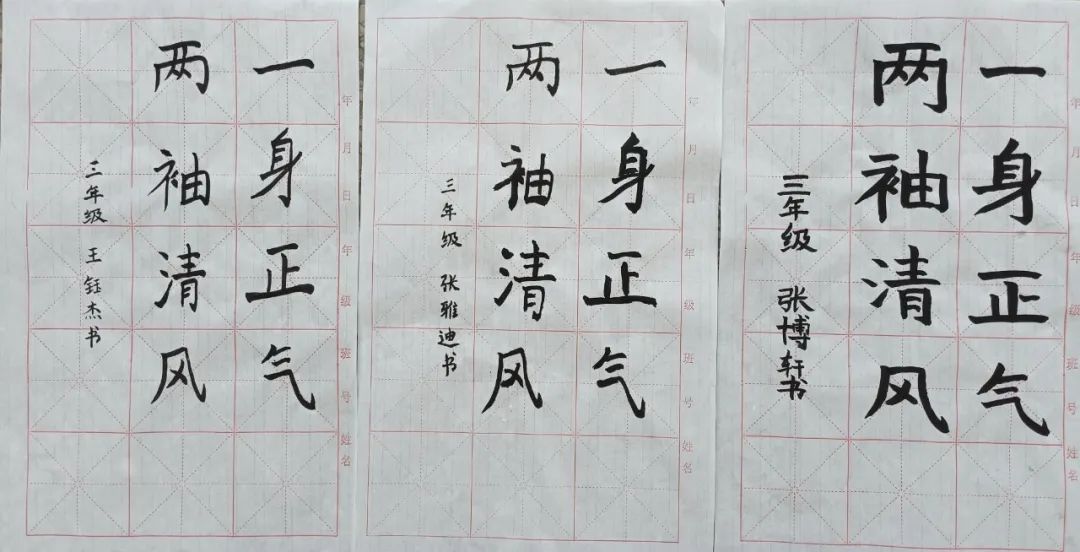 一身正气
两袖清风
三年级 王钰杰书
年月日 年级班号 姓名
一身正气
两袖清风
三年级 张雅迪书
年月日 年级班号 姓名
一身正气
两袖清风
三年级 张博轩书
年月日 年级班号 姓名